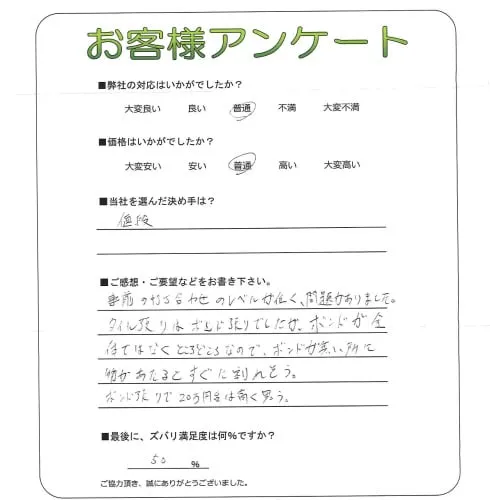 お客様アンケート
■弊社の対応はいかがでしたか？
大変良い 良い 普通 不満 大変不満
■価格はいかがでしたか？
大変安い 安い 普通 高い 大変高い
■当社を選んだ決め手は？
値段
■ご感想・ご要望などをお書き下さい。
事前の打ち合わせのレベルが低く、問題がありました。
タイル張りはボンド張りでしたが、ボンドが全
体ではなくところどころなので、ボンドが無い所に
物があたるとすぐに割れそう。
ボンド張りで20万円台は高く思う。
■最後に、ズバリ満足度は何%ですか？
50 %
ご協力頂き、誠にありがとうございました。